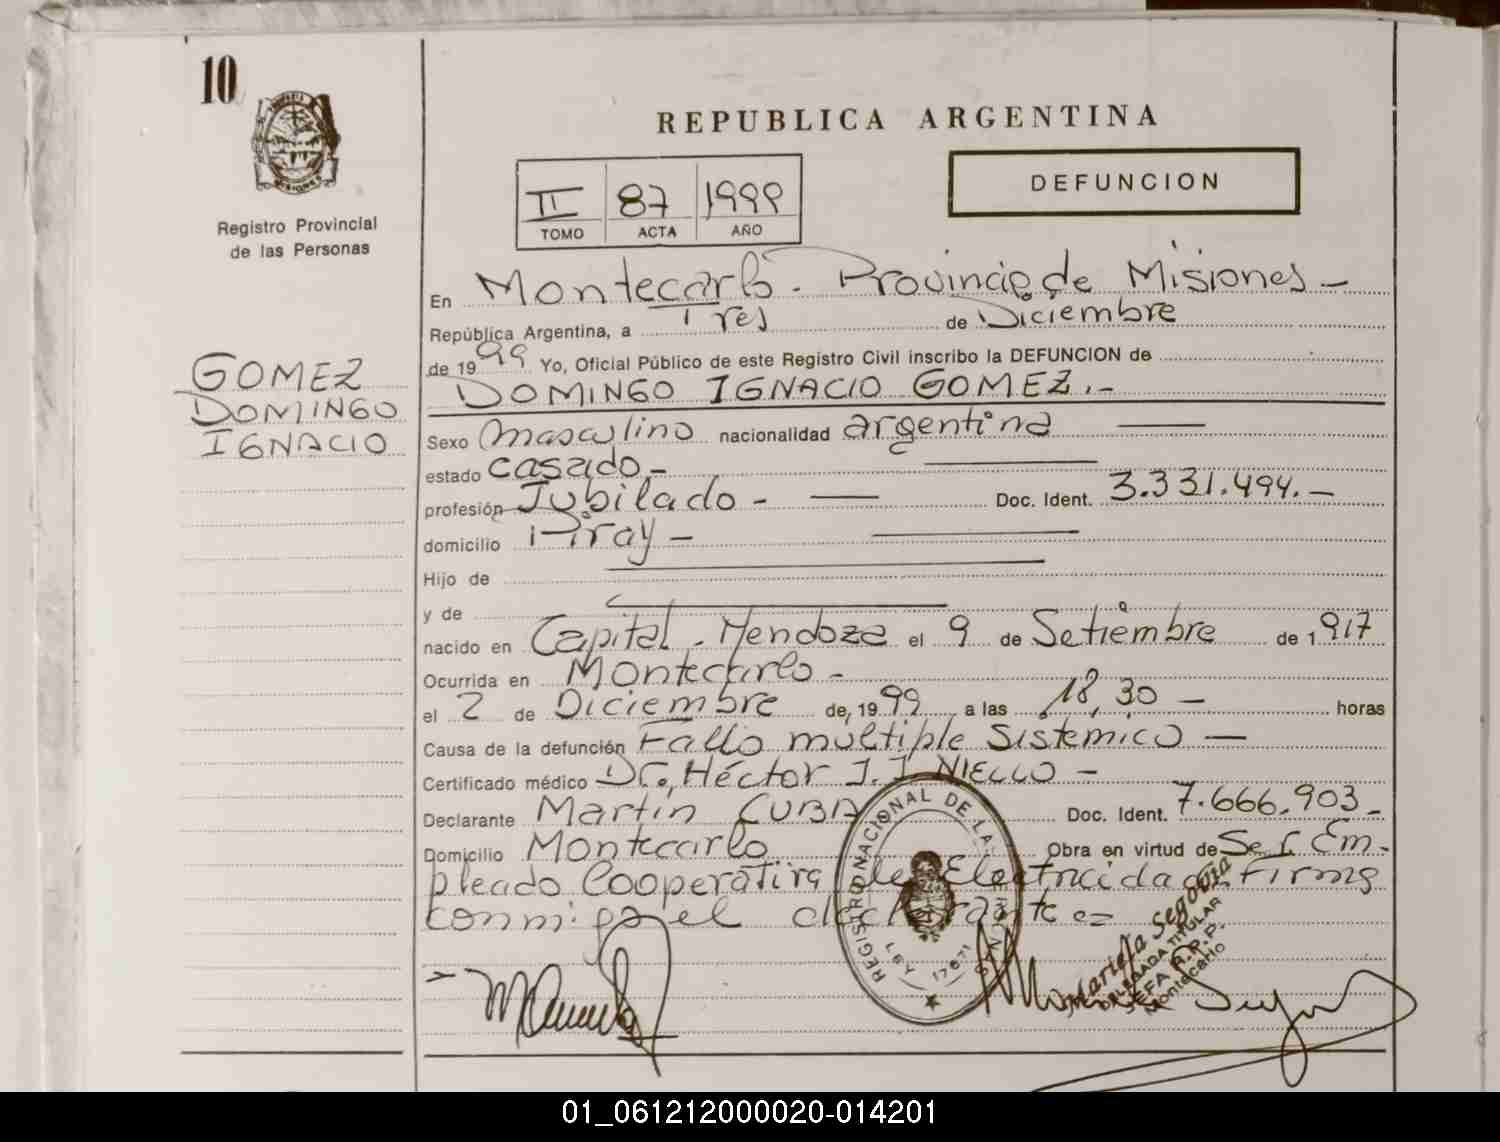 10
Registro Provincial
de las Personas
REPUBLICA ARGENTINA
II 87 1999
TOMO ACTA AÑO
DEFUNCION
En Montecarlo - Provincia de Misiones -
República Argentina, a Tres de Diciembre
de 1999 Yo, Oficial Público de este Registro Civil inscribo la DEFUNCION de
DOMINGO IGNACIO GOMEZ.-
GOMEZ
DOMINGO
IGNACIO
Sexo masculino nacionalidad argentina
estado casado -
profesión Jubilado - Doc. Ident. 3.331.494.-
domicilio Piray -
Hijo de
y de
nacido en Capital - Mendoza el 9 de Setiembre de 1917
Ocurrida en Montecarlo -
el 2 de Diciembre de, 1999 a las 18,30 - horas
Causa de la defunción Fallo múltiple Sistémico -
Certificado médico Dr. Héctor J.J NIELLO -
Declarante Martín CUBA Doc. Ident. 7.666.903 -
Domicilio Montecarlo Obra en virtud de Ser Em-
pleado Cooperativa de Electricidad Firma
conmigo el declarante =
REGISTRO NACIONAL DE LAS PERSONAS
LEY 17671
Mariela Segovia
DELEGADA TITULAR
JEFA R.P.P.
Montecarlo
01_061212000020-014201